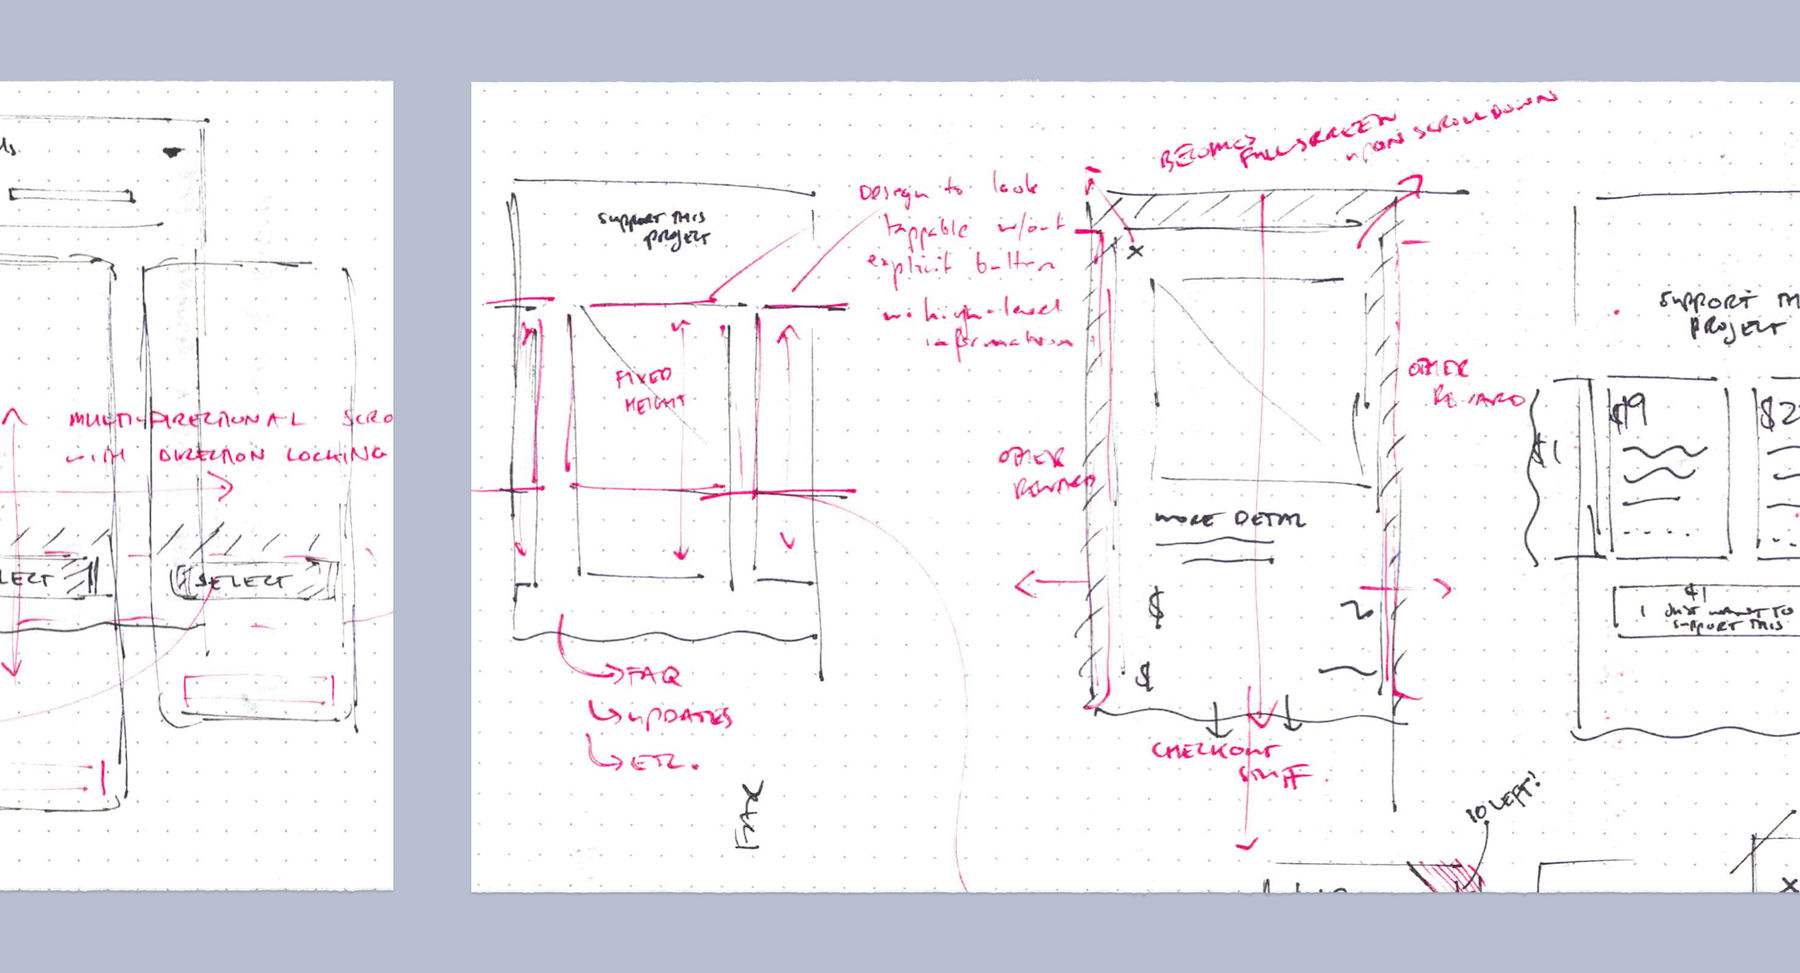 MULTI-DIRECTIONAL SCRO
WITH DIRECTION LOCKING
LECT
SELECT
SUPPORT THIS
PROJECT
Design to look
tappable w/out
explicit button
w. high-level
information
FIXED
HEIGHT
FAQ
UPDATES
ETC.
FAX
BECOMES
FULLSCREEN
UPON SCROLLDOWN
X
OTHER
REWARD
OTHER
REWARD
MORE DETAIL
$
$
CHECKOUT
STUFF.
SUPPORT TH
PROJECT
$1
$9
$2
$1
I JUST WANT TO
SUPPORT THIS
10 LEFT!
X